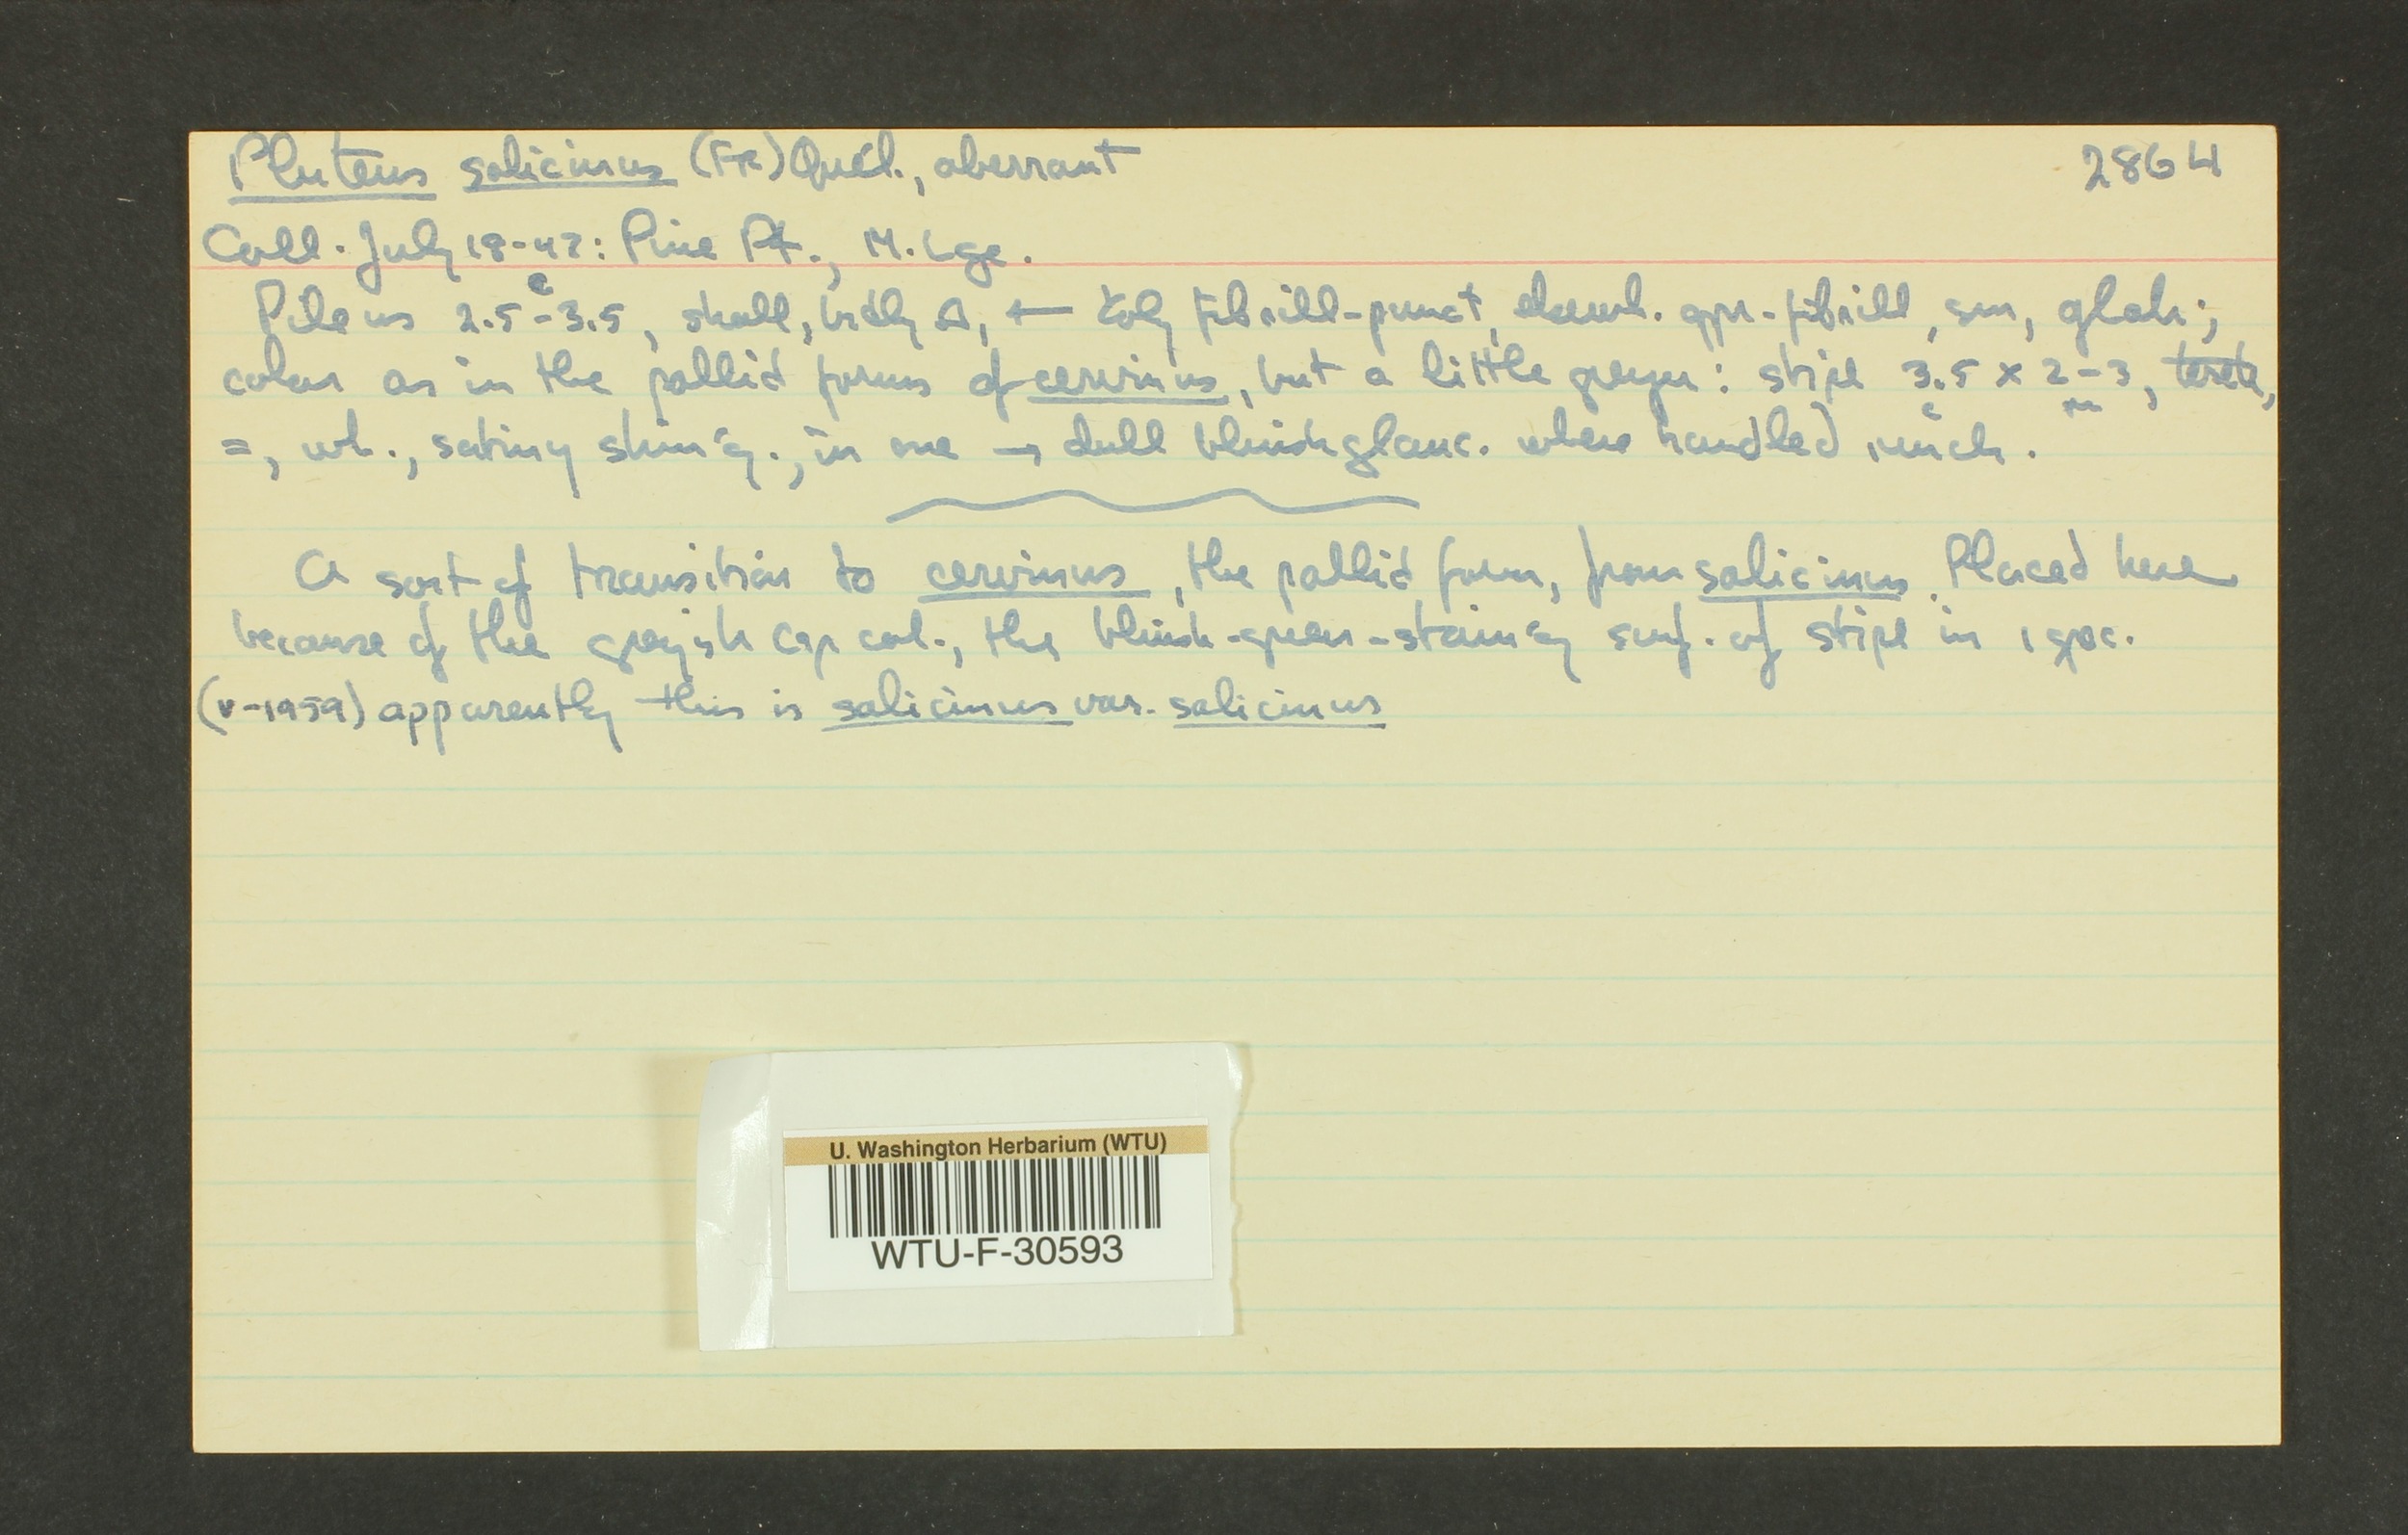 Pluteus salicinus (Fr) Quél., aberrant 2864
Coll. July 18-42: Pine Pt., M. Lge.
Pileus 2.5-3.5 c, shall, brdly ←  fibrill-punct, elsewh. appr-fibrill, sm, glab;
color as in the pallid forms of cervinus, but a little greyer: stipe 3.5 c x 2-3 m, terete,
=, wh., satiny shin'g., in one → dull bluish glauc. where handled much.
A sort of transition to cervinus, the pallid form, from salicinus. Placed here
because of the greyish cap col., the bluish-green-stain'g surf. of stipe in 1 spec.
(V-1959) apparently this is salicinus var. salicinus
U. Washington Herbarium (WTU)
WTU-F-30593